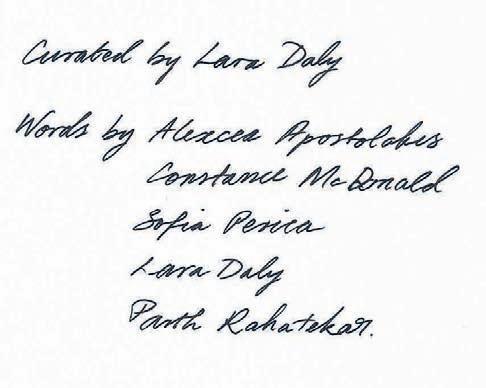 Curated by Lara Daly
Words by Alexcea Apostolakis
Constance McDonald
Sofia Perica
Lara Daly
Parth Rahatekar.